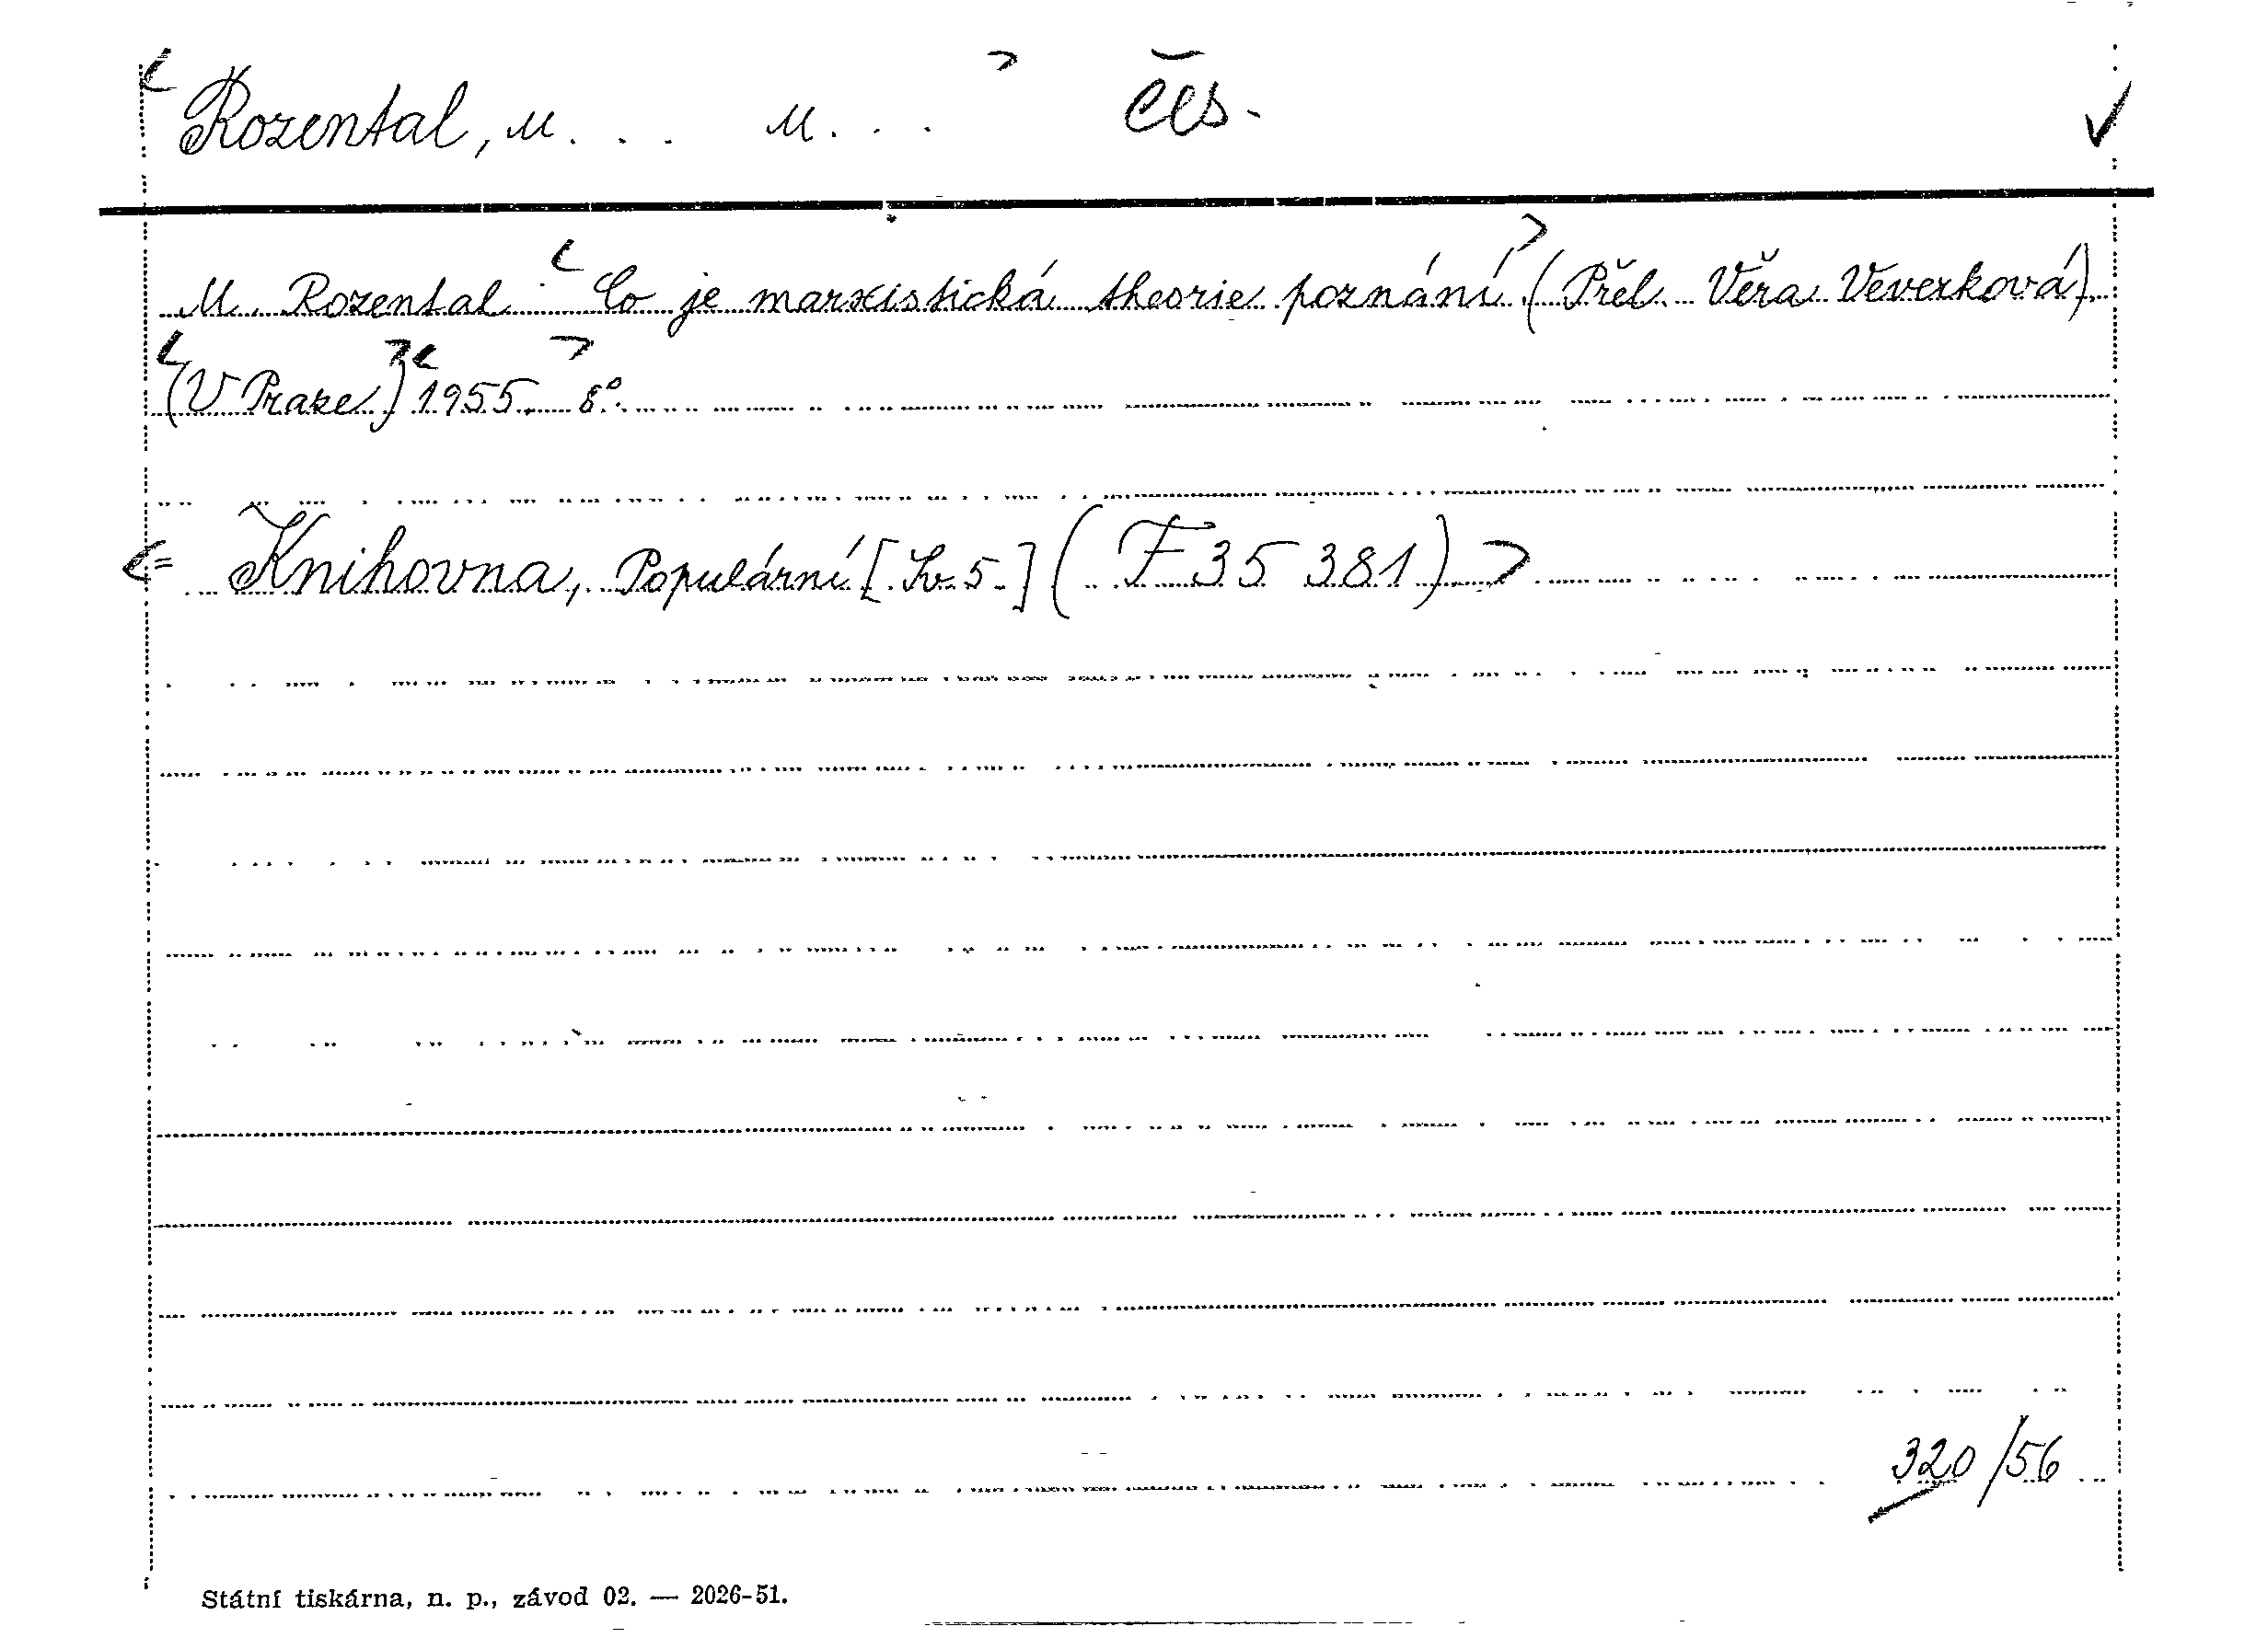 Rozental, M... M... čes.
M. Rozental: Co je marxistická theorie poznání. (Přel. Věra Veverková).
(V Praze) 1955. 8°.
= Knihovna, Populární [Sv. 5.] (F 35 381)
320/56
Státní tiskárna, n. p., závod 02. — 2026-51.